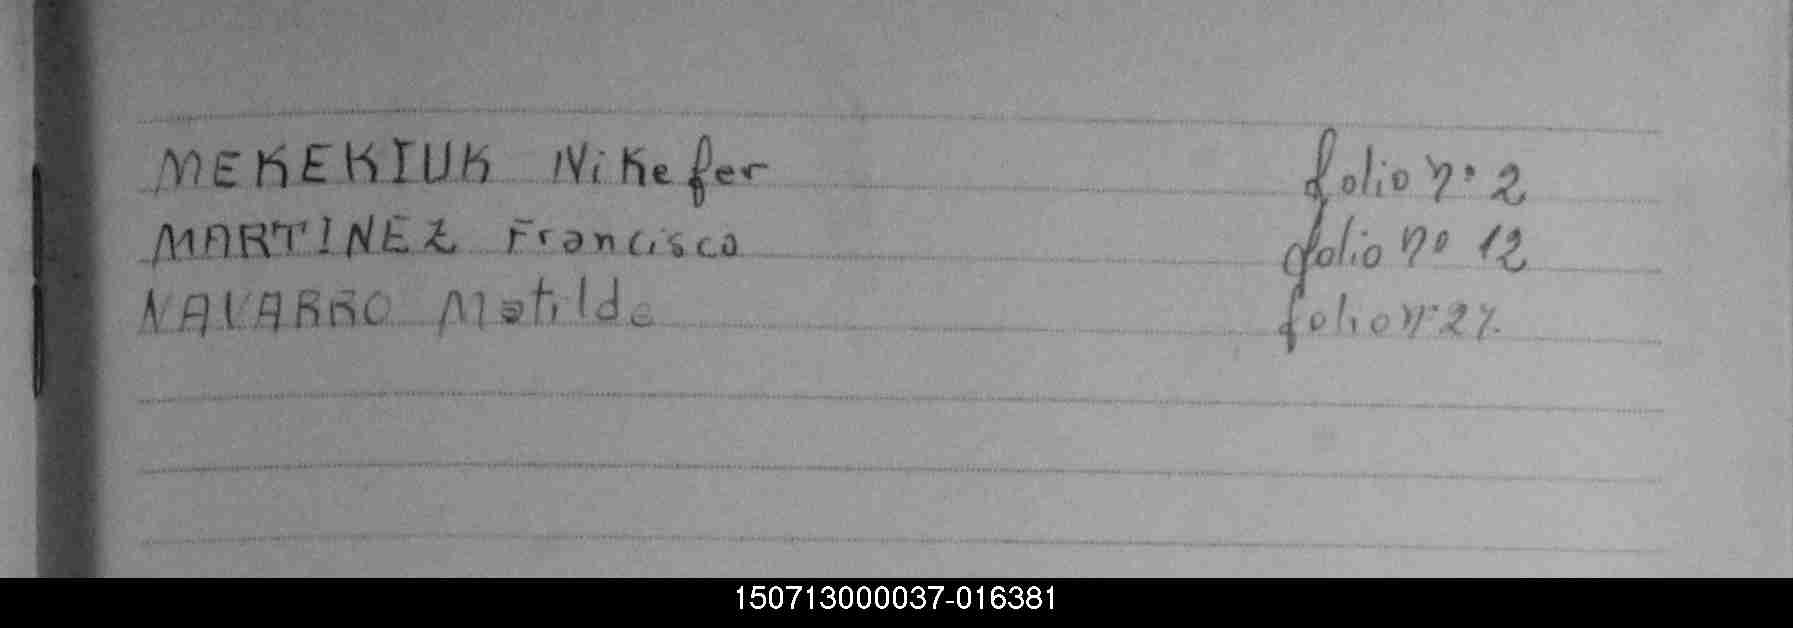 MEKEKIUK Nikefer folio nº 2
MARTINEZ Francisco folio nº 12
NAVARRO Matilde folio nº
150713000037-016381